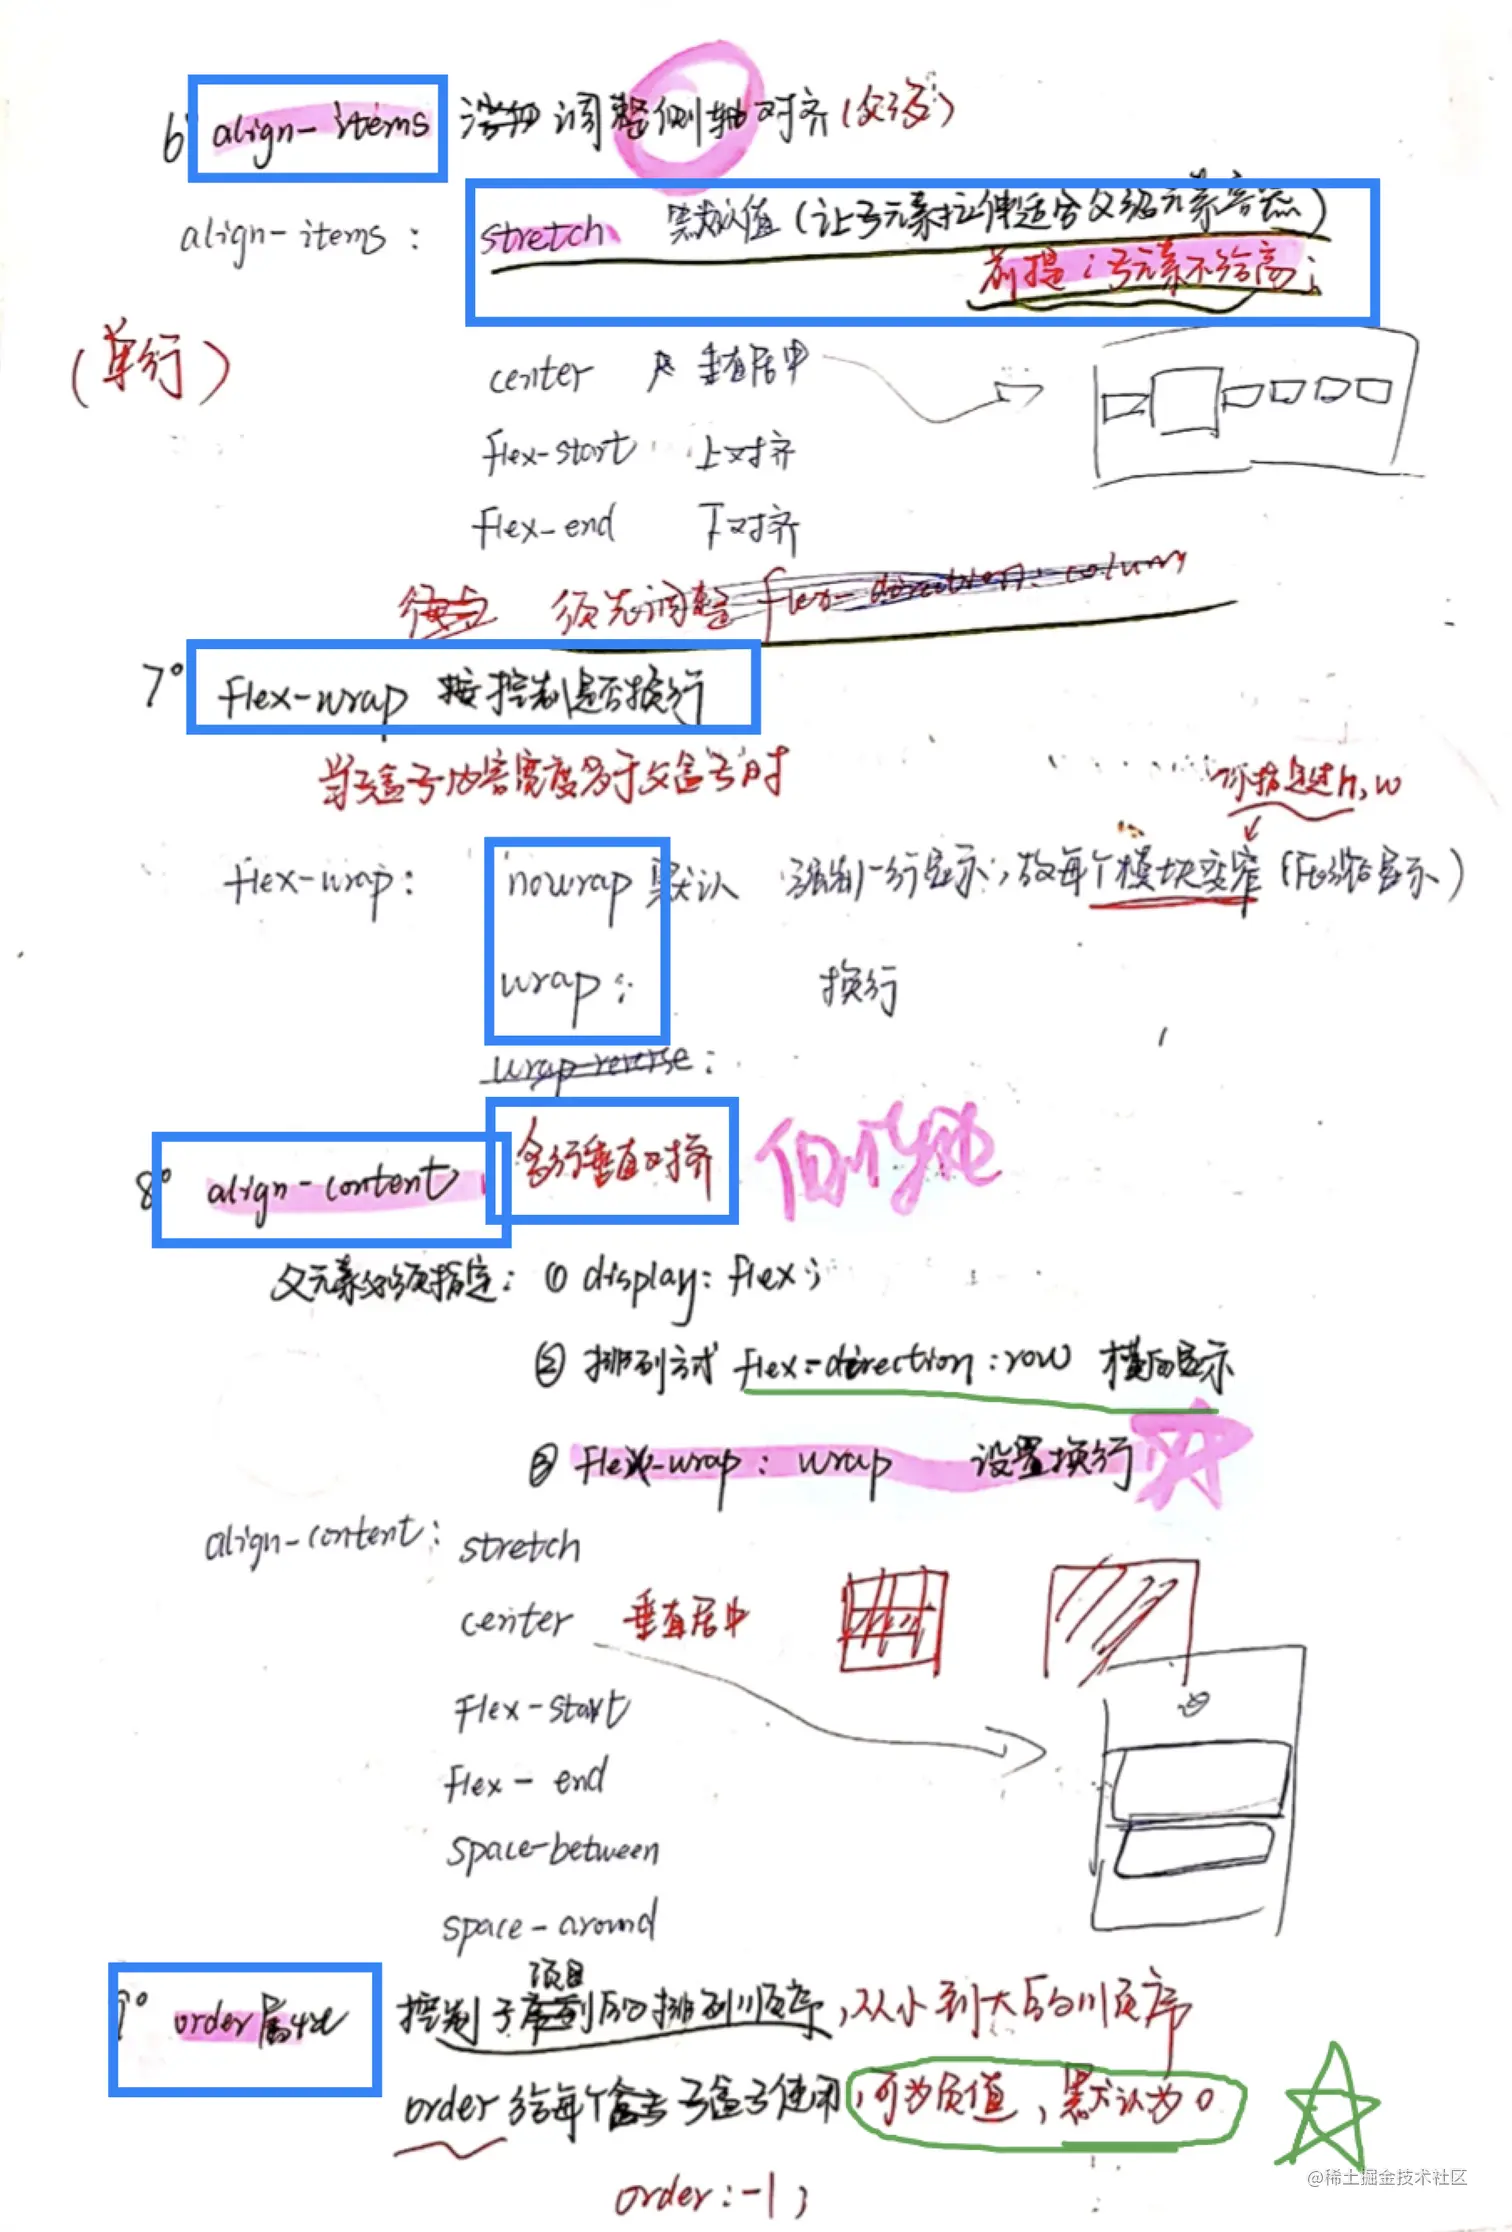 6° align-items 调整侧轴对齐(父级)
align-items: stretch 默认值(让子元素拉伸适合父级元素容器)
前提:子元素不给高;
(单行)
center 垂直居中
flex-start 上对齐
flex-end 下对齐
须先调整 flex-direction: column
7° flex-wrap 控制是否换行
当子盒子内容宽度多于父盒子时
你指定过h,w
flex-wrap: nowrap 默认 强制一行显示;故每个模块变窄(压缩显示)
wrap: 换行
wrap-reverse:
8° align-content 多行垂直对齐
父元素必须指定: ① display: flex;
② 排列方式 flex-direction: row 横向显示
③ flex-wrap: wrap 设置换行
align-content: stretch
center 垂直居中
flex-start
flex-end
space-between
space-around
项目
9° order属性 控制子 的排列顺序,从小到大的顺序
order 给每个 子盒子使用,可为负值,默认为0
order:-1;
@稀土掘金技术社区